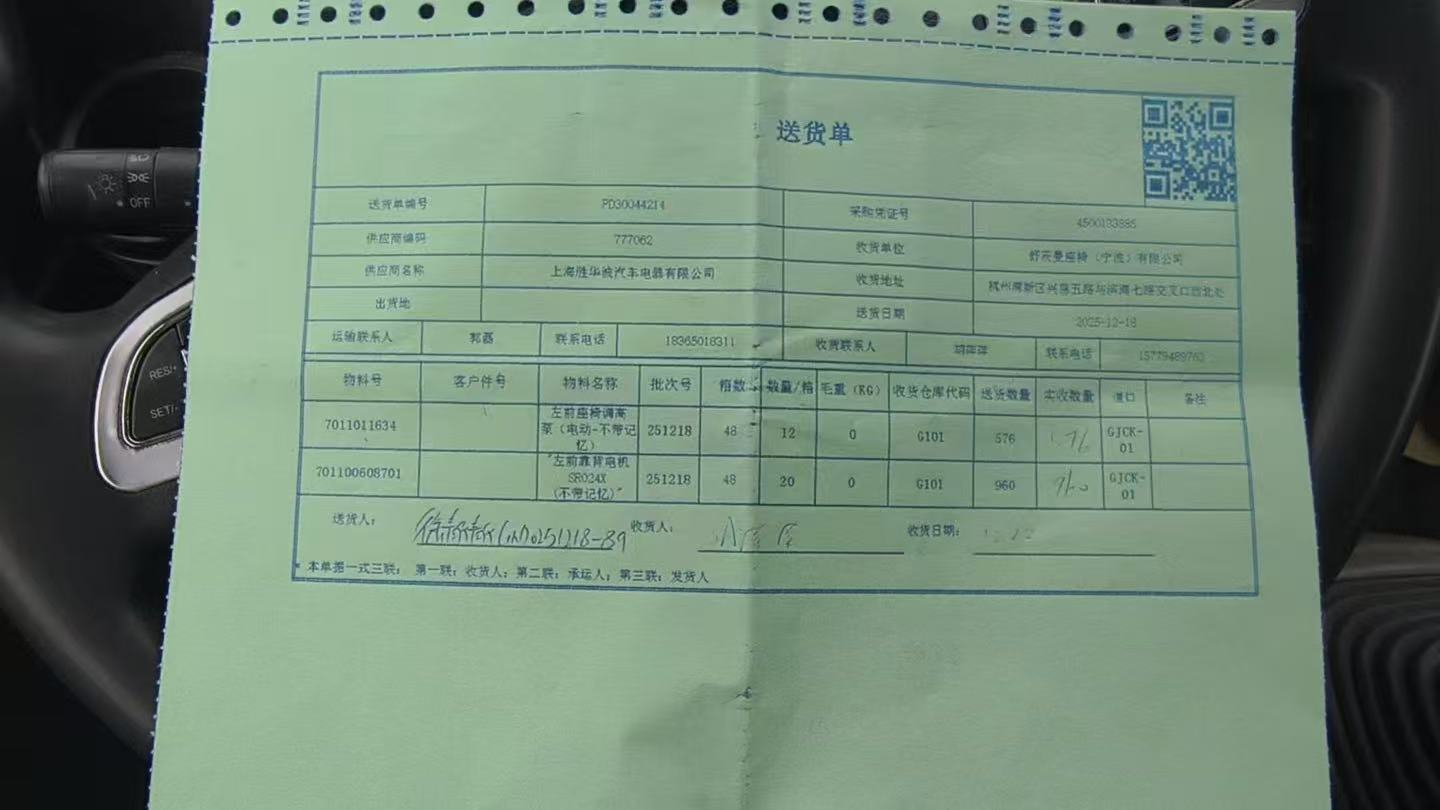 送货单
送货单编号 PD30044214 采购凭证号 4500133885
供应商编码 777062 收货单位 舒茨曼座椅（宁波）有限公司
供应商名称 上海胜华波汽车电器有限公司 收货地址 杭州湾新区兴慈五路与滨海七路交叉口西北处
出货地 送货日期 2025-12-18
运输联系人 郭磊 联系电话 18365018311 收货联系人 联系电话 15779489763
物料号 客户件号 物料名称 批次号 箱数 数量/箱 毛重（KG） 收货仓库代码 送货数量 实收数量 道口 备注
7011011634 左前座椅调高泵（电动-不带记忆） 251218 48 12 0 G101 576 576 GJCK-01
701100608701 "左前靠背电机SR024X（不带记忆）" 251218 48 20 0 G101 960 960 GJCK-01
送货人： 收货人： 收货日期：
*本单据一式三联： 第一联：收货人；第二联：承运人；第三联：发货人
RES/+
SET/-
OFF